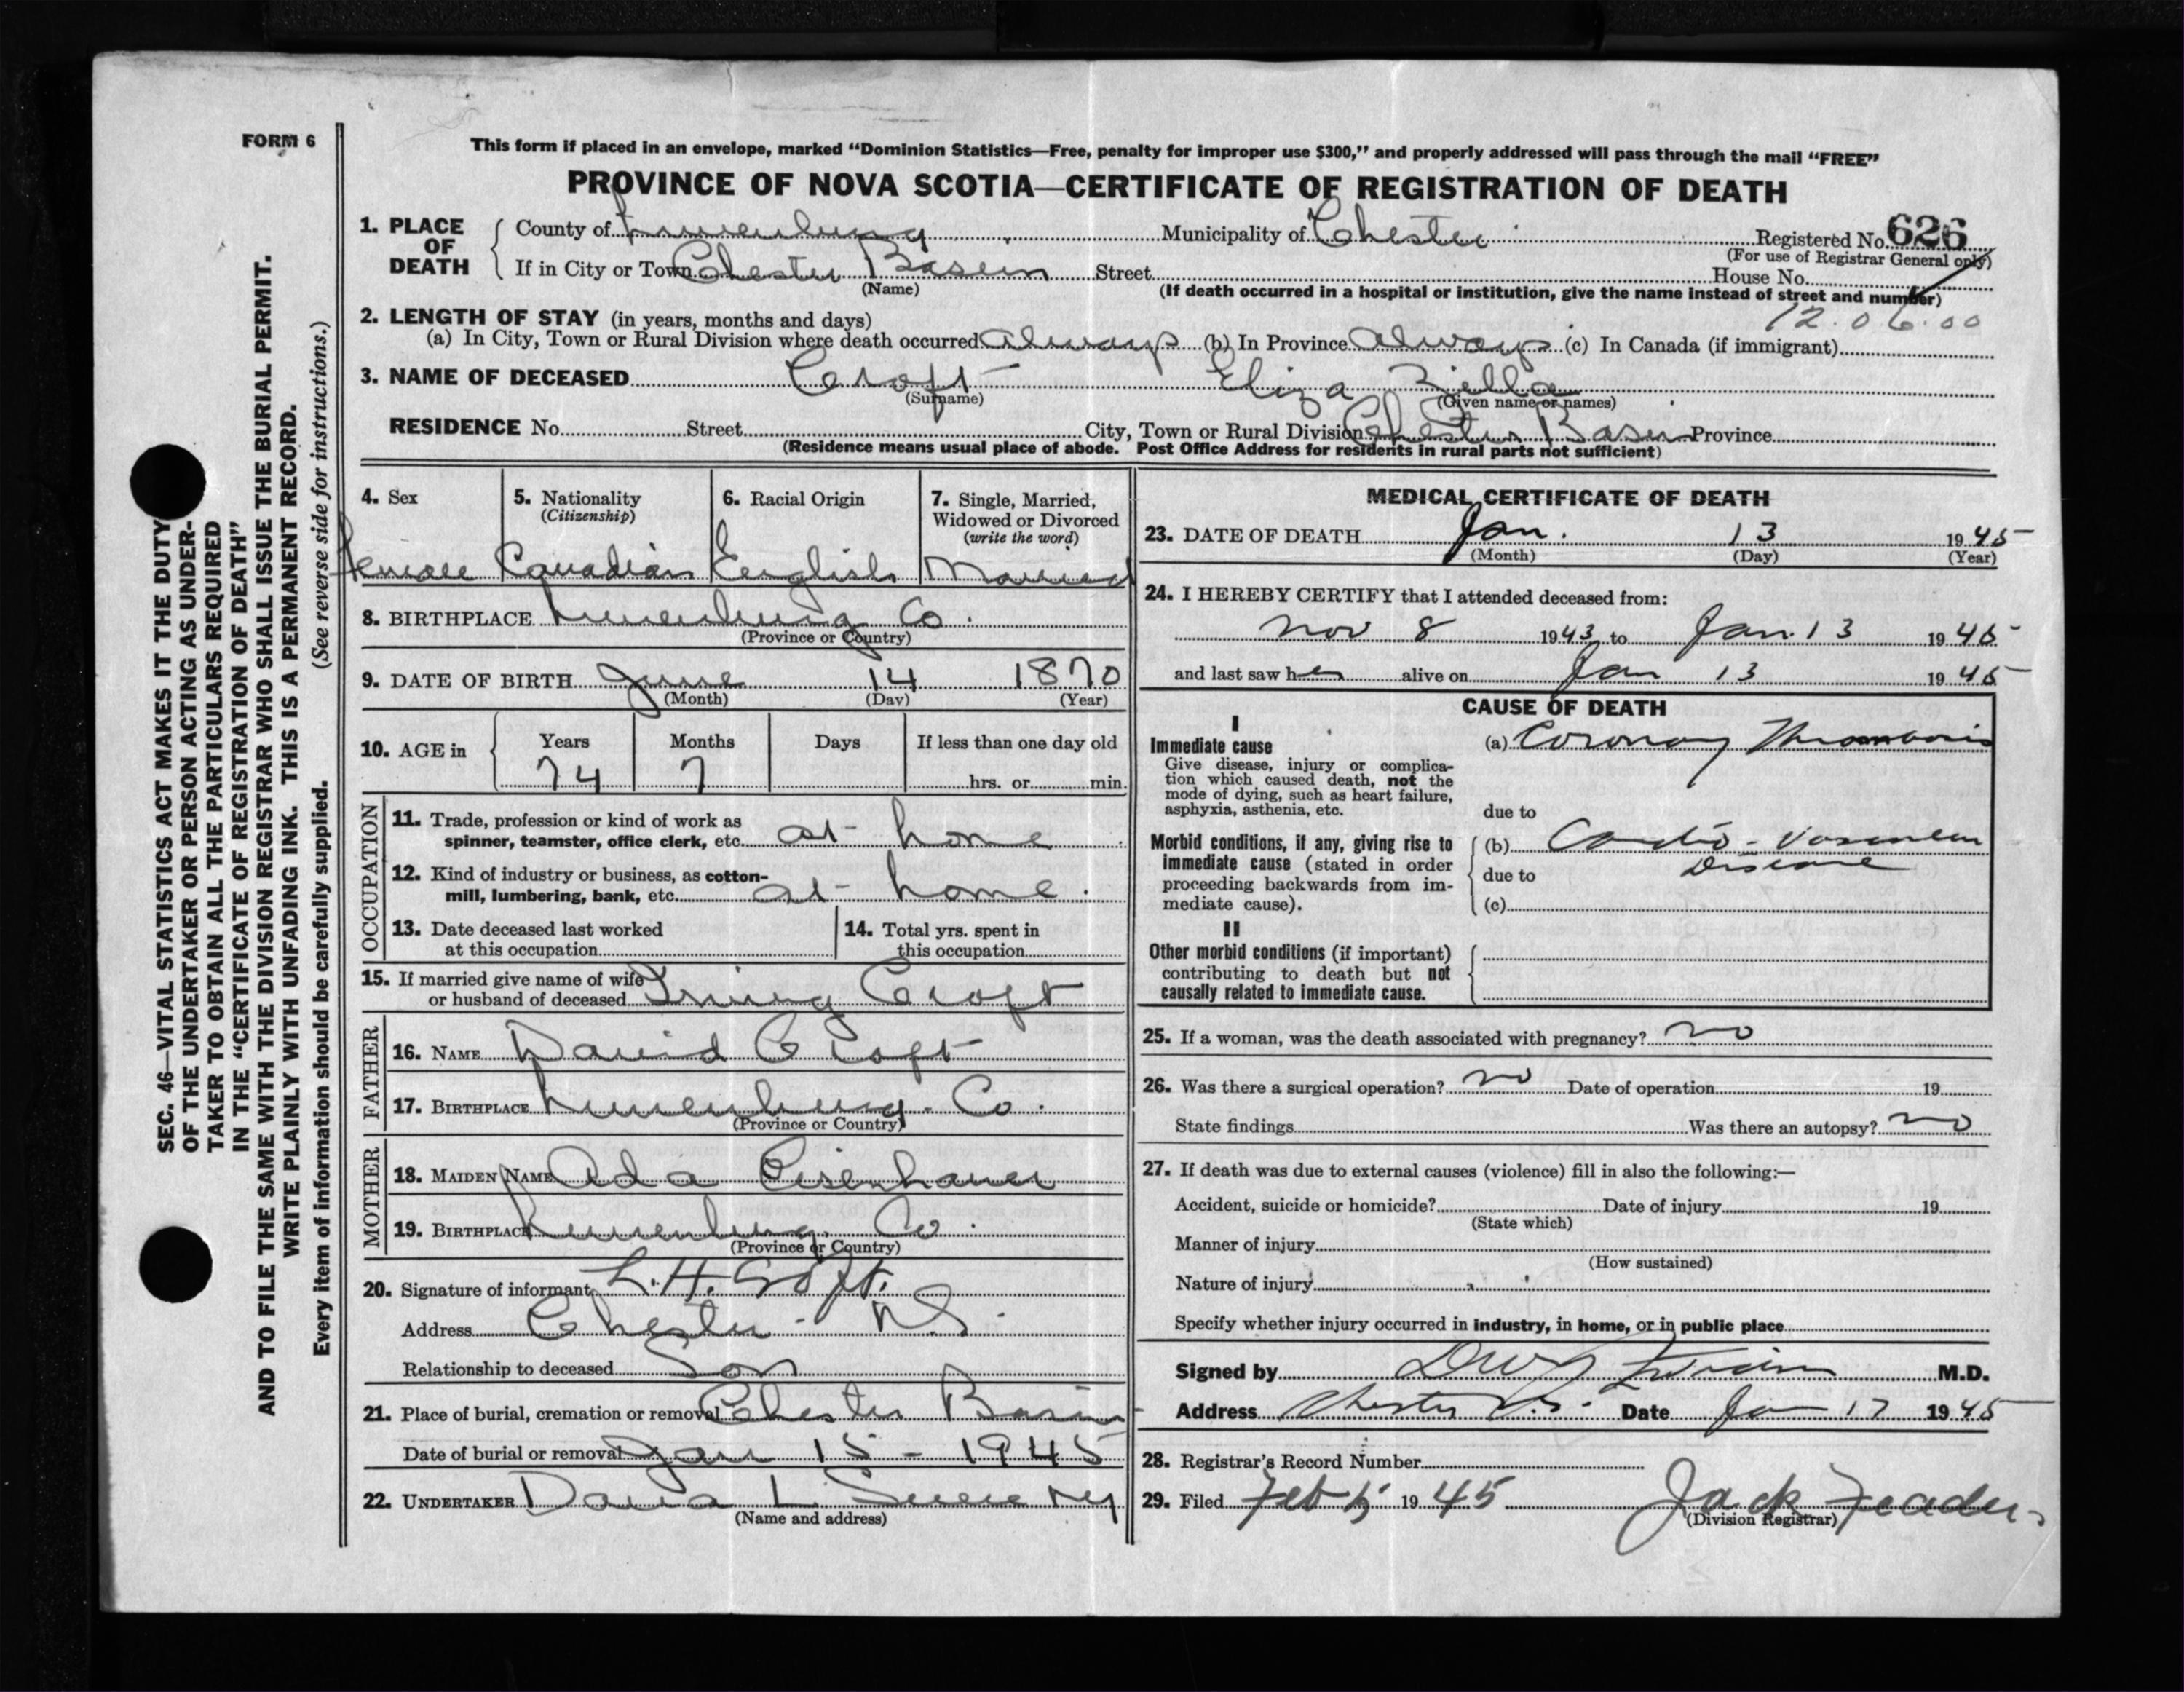 FORM 6
This form if placed in an envelope, marked “Dominion Statistics—Free, penalty for improper use $300,” and properly addressed will pass through the mail “FREE”
PROVINCE OF NOVA SCOTIA—CERTIFICATE OF REGISTRATION OF DEATH
1. PLACE OF DEATH
County of Lunenburg Municipality of Chester Registered No. 626
(For use of Registrar General only)
If in City or Town Chester Basin Street House No.
(Name) (If death occurred in a hospital or institution, give the name instead of street and number)
12.06.00
2. LENGTH OF STAY (in years, months and days)
(a) In City, Town or Rural Division where death occurred always (b) In Province always (c) In Canada (if immigrant)
3. NAME OF DECEASED Croft Eliza Zilla
(Surname) (Given name or names)
RESIDENCE No. Street City, Town or Rural Division Chester Basin Province
(Residence means usual place of abode. Post Office Address for residents in rural parts not sufficient)
4. Sex
Female
5. Nationality
(Citizenship)
Canadian
6. Racial Origin
English
7. Single, Married,
Widowed or Divorced
(write the word)
Married
8. BIRTHPLACE Lunenburg Co.
(Province or Country)
9. DATE OF BIRTH June 14 1870
(Month) (Day) (Year)
10. AGE in Years Months Days If less than one day old
74 7 hrs. or min.
OCCUPATION
11. Trade, profession or kind of work as
spinner, teamster, office clerk, etc. at home
12. Kind of industry or business, as cotton-
mill, lumbering, bank, etc. at home.
13. Date deceased last worked
at this occupation
14. Total yrs. spent in
this occupation
15. If married give name of wife
or husband of deceased Irving Croft
FATHER
16. NAME David Croft
17. BIRTHPLACE Lunenburg. Co.
(Province or Country)
MOTHER
18. MAIDEN NAME Ada Eisenhauer
19. BIRTHPLACE Lunenburg. Co.
(Province or Country)
20. Signature of informant L. H. Croft.
Address Chester - N.S.
Relationship to deceased Son
21. Place of burial, cremation or removal Chester Basin
Date of burial or removal Jan 15 - 1945
22. UNDERTAKER L
(Name and address)
MEDICAL CERTIFICATE OF DEATH
23. DATE OF DEATH Jan. 13 1945
(Month) (Day) (Year)
24. I HEREBY CERTIFY that I attended deceased from:
Nov 8 1943 to Jan. 13 1945
and last saw her alive on Jan 13 1945
CAUSE OF DEATH
I
Immediate cause
Give disease, injury or complica-
tion which caused death, not the
mode of dying, such as heart failure,
asphyxia, asthenia, etc.
(a) Coronary Thrombosis
due to
Morbid conditions, if any, giving rise to
immediate cause (stated in order
proceeding backwards from im-
mediate cause).
(b) Cardio-Vascular
due to Disease
(c)
II
Other morbid conditions (if important)
contributing to death but not
causally related to immediate cause.
25. If a woman, was the death associated with pregnancy? no
26. Was there a surgical operation? no Date of operation 19
State findings Was there an autopsy? no
27. If death was due to external causes (violence) fill in also the following:—
Accident, suicide or homicide? Date of injury 19
(State which)
Manner of injury
(How sustained)
Nature of injury
Specify whether injury occurred in industry, in home, or in public place
Signed by M.D.
Address Chester N.S. Date Jan 17 1945
28. Registrar's Record Number
29. Filed Feb 1945 Jack Feader
(Division Registrar)
SEC. 46—VITAL STATISTICS ACT MAKES IT THE DUTY
OF THE UNDERTAKER OR PERSON ACTING AS UNDER-
TAKER TO OBTAIN ALL THE PARTICULARS REQUIRED
IN THE “CERTIFICATE OF REGISTRATION OF DEATH”
AND TO FILE THE SAME WITH THE DIVISION REGISTRAR WHO SHALL ISSUE THE BURIAL PERMIT.
WRITE PLAINLY WITH UNFADING INK. THIS IS A PERMANENT RECORD.
Every item of information should be carefully supplied. (See reverse side for instructions.)